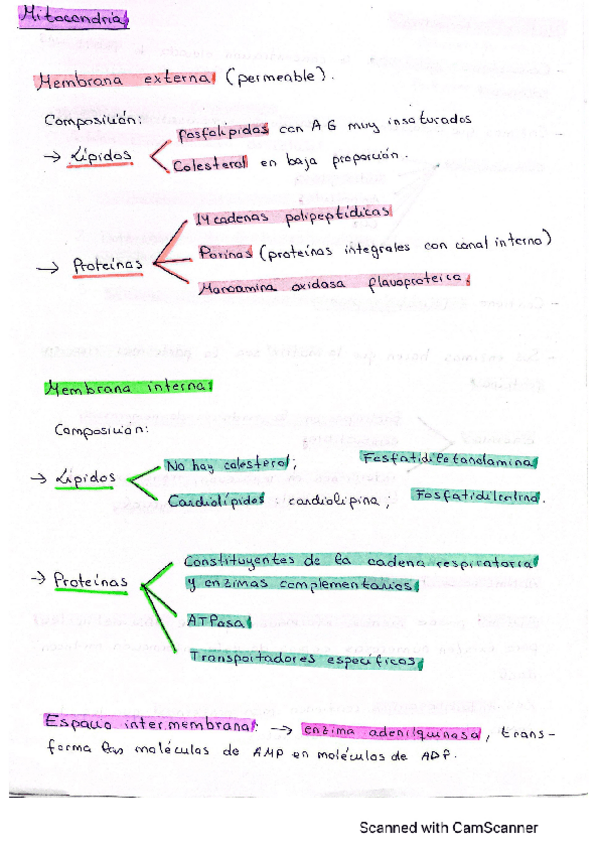 Mitocondria
Membrana externa (permeable).
Composición:
→ Lípidos
Fosfolípidos con AG muy insaturados
Colesterol en baja proporción.
→ Proteínas
14 cadenas polipeptídicas
Porinas (proteínas integrales con canal interno)
Monoamina oxidasa flavoproteica.
Membrana interna
Composición:
→ Lípidos
No hay colesterol; Fosfatidiletanolamina
Cardiolípidos: cardiolipina; Fosfatidilcolina.
→ Proteínas
Constituyentes de la cadena respiratoria
y enzimas complementarios
ATPasa
Transportadores específicos
Espacio intermembrana: → enzima adenilquinasa, trans-
forma las moléculas de AMP en moléculas de ADP.
Scanned with CamScanner